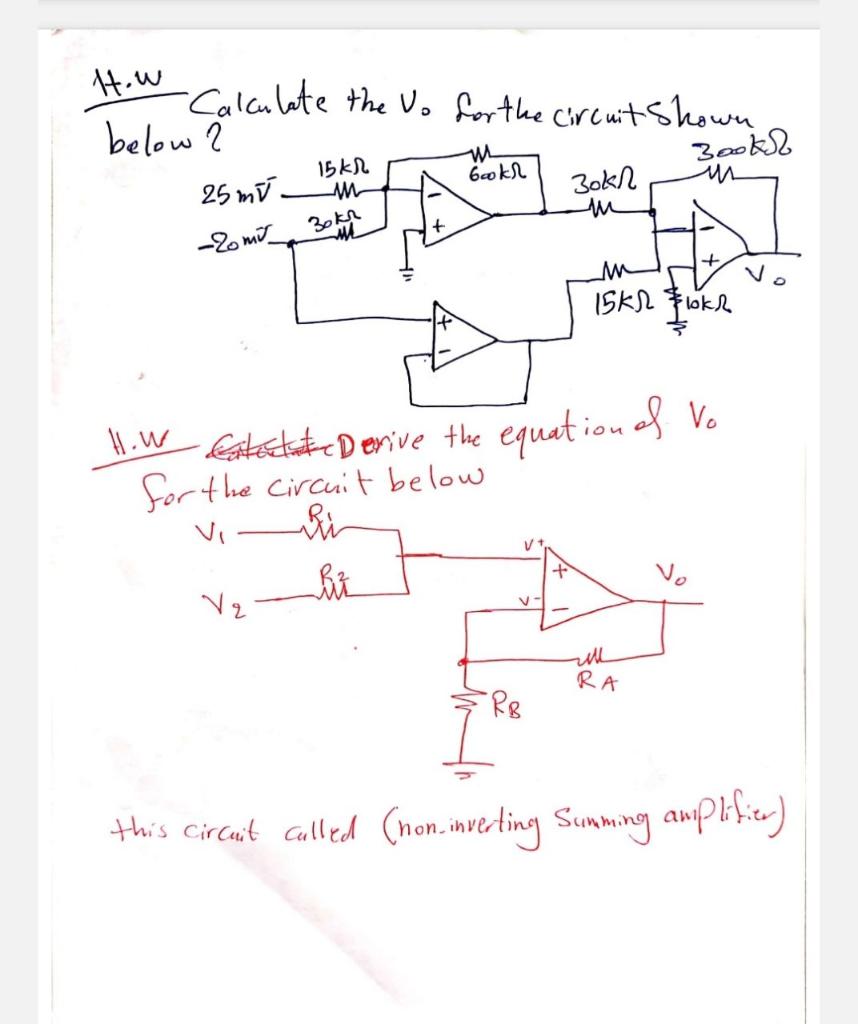 H.W
Calculate the Vo for the circuit shown
below?
300kΩ
15kΩ
600kΩ
30kΩ
25 mV
30kΩ
-20mV
-
+
-
+
Vo
15kΩ
10kΩ
+
-
H.W Derive the equation of Vo
for the circuit below
V1
R1
V+
+
Vo
R2
V2
V-
-
RA
RB
this circuit called (non-inverting Summing amplifier)